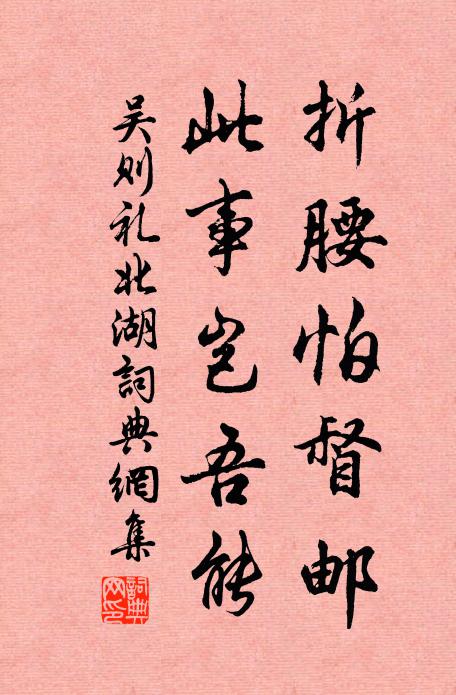 折腰怕督邮
此事岂吾能
吴则礼北湖詞典網集
詞典
网印